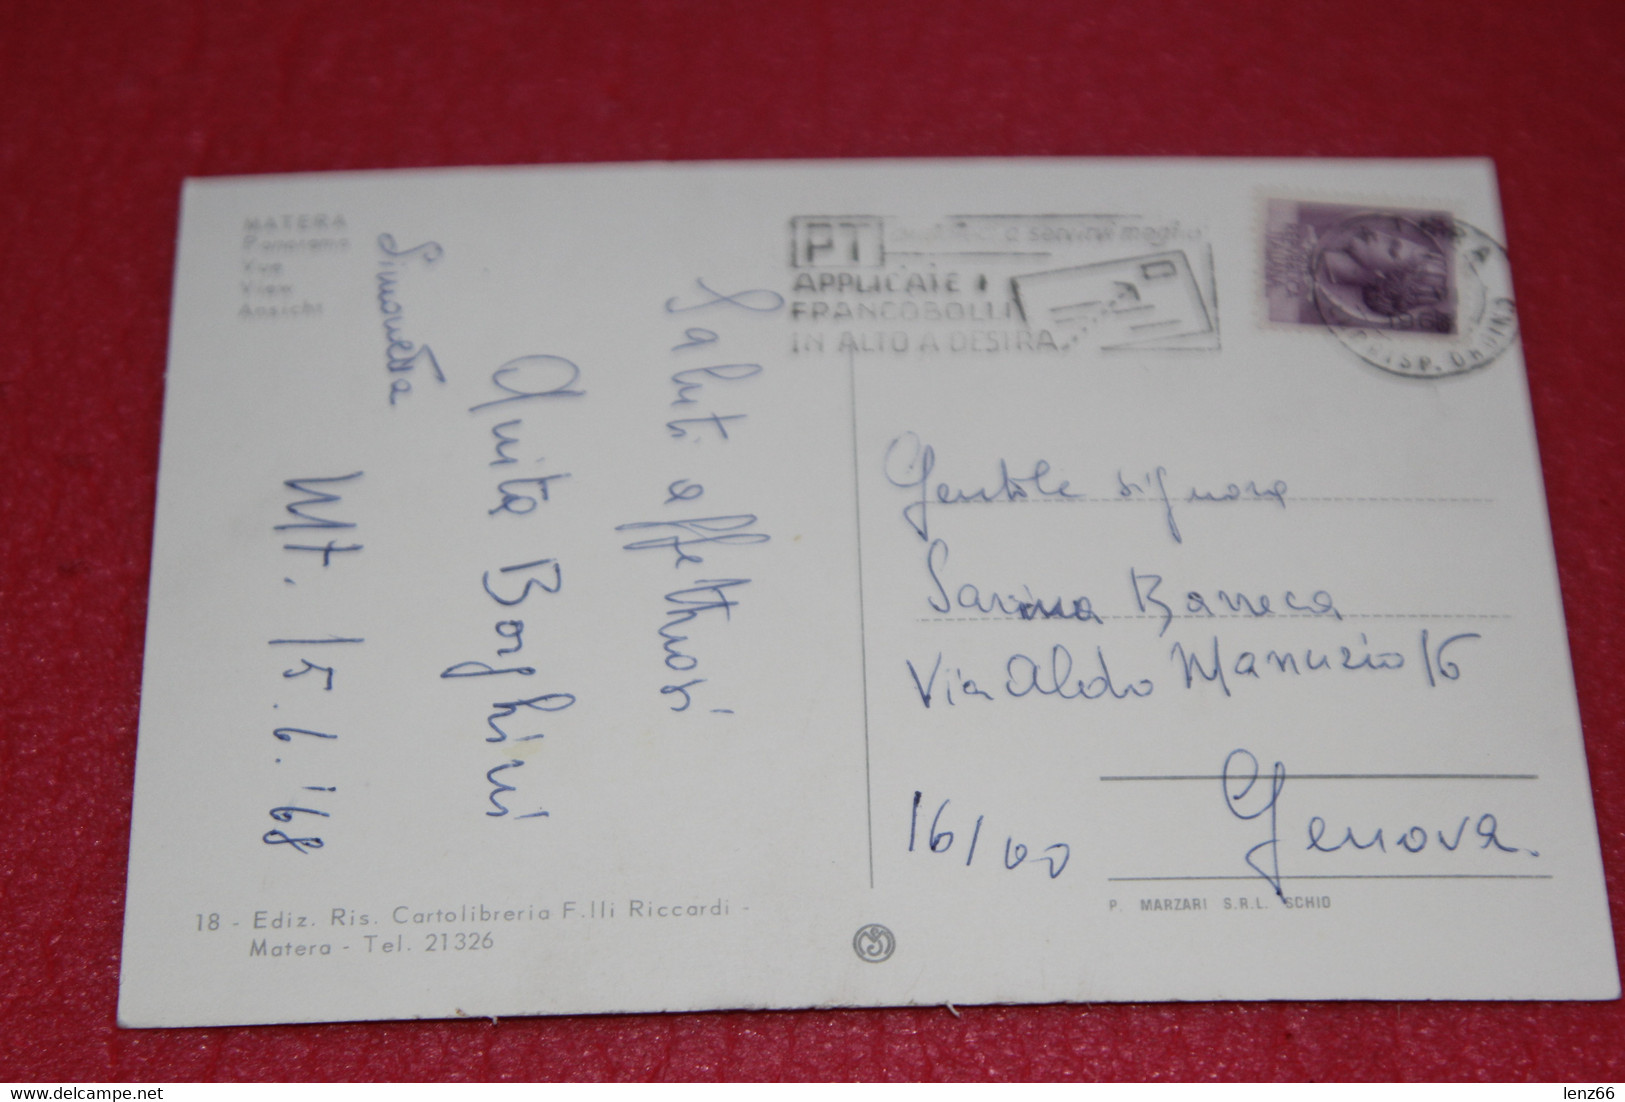 MATERA
Panorama
Vue
View
Ansicht
Simonetta
Saluti affettuosi
Anita Borghini
Mt. 15.6.'68
18 - Ediz. Ris. Cartolibreria F.lli Riccardi -
Matera - Tel. 21326
PT a servirvi meglio
APPLICATE I
FRANCOBOLLI
IN ALTO A DESTRA
Gentile signora
Sarina Barreca
Via Aldo Manuzio 16
16100
Genova.
P. MARZARI S.R.L. SCHIO
lenz66